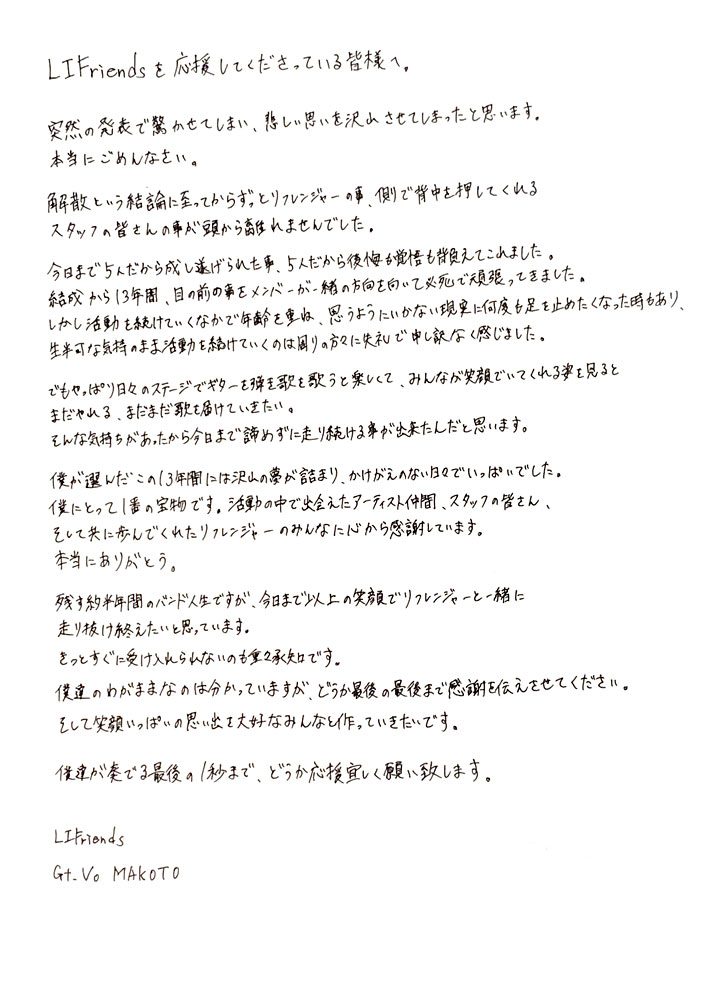 LIFriendsを応援してくださっている皆様へ。
突然の発表で驚かせてしまい、悲しい思いを沢山させてしまったと思います。
本当にごめんなさい。
解散という結論に至ってからずっとリフレンジャーの事、側で背中を押してくれる
スタッフの皆さんの事が頭から離れませんでした。
今日まで5人だから成し遂げられた事、5人だから後悔も覚悟も背負えてこれました。
結成から13年間、目の前の事をメンバーが一緒の方向を向いて必死で頑張ってきました。
しかし活動を続けていくなかで年齢を重ね、思うようにいかない現実に何度も足を止めたくなった時もあり、
生半可な気持のまま活動を続けていくのは周りの方々に失礼で申し訳なく感じました。
でもやっぱり日々のステージでギターを弾き歌を歌うと楽しくて、みんなが笑顔でいてくれる姿を見ると
まだやれる、まだまだ歌を届けていきたい。
そんな気持ちがあったから今日まで諦めずに走り続ける事が出来たんだと思います。
僕が選んだこの13年間には沢山の夢が詰まり、かけがえのない日々でいっぱいでした。
僕にとって1番の宝物です。活動の中で出会えたアーティスト仲間、スタッフの皆さん、
そして共に歩んでくれたリフレンジャーのみんなに心から感謝しています。
本当にありがとう。
残す約半年間のバンド人生ですが、今日まで以上の笑顔でリフレンジャーと一緒に
走り抜け終えたいと思っています。
きっとすぐに受け入れられないのも重々承知です。
僕達のわがままなのは分かっていますが、どうか最後の最後まで感謝を伝えさせてください。
そして笑顔いっぱいの思い出を大好なみんなと作っていきたいです。
僕達が奏でる最後の1秒まで、どうか応援宜しく願い致します。
LIFriends
Gt.Vo MAKOTO